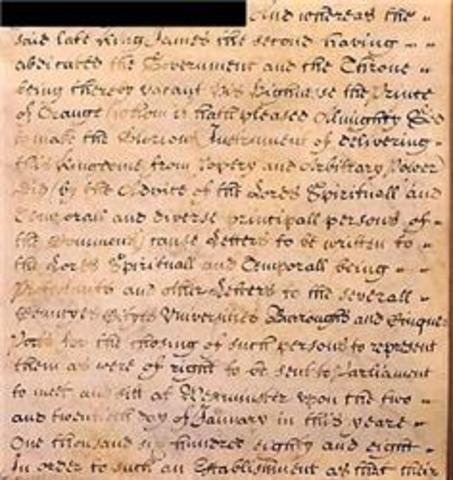 And whereas the
said late King James the second having
abdicated the Government and the Throne
being thereby vacant His Highnesse the Prince
of Orange (whom it hath pleased Almighty God
to make the Glorious Instrument of delivering
this Kingdome from Popery and Arbitrary Power)
did (by the Advice of the Lords Spirituall and
Temporall and diverse principall persons of
the Commons) cause Letters to be written to
the Lords Spirituall and Temporall being
Protestants and other Letters to the severall
Countyes Cityes Universities Burroughs and Cinque
Ports for the chosing of such persons to represent
them as were of right to be sent to Parliament
to meet and sitt at Westminster upon the two
and twentieth day of January in this yeare
One thousand six hundred eighty and eight
In order to such an Establishment as that their